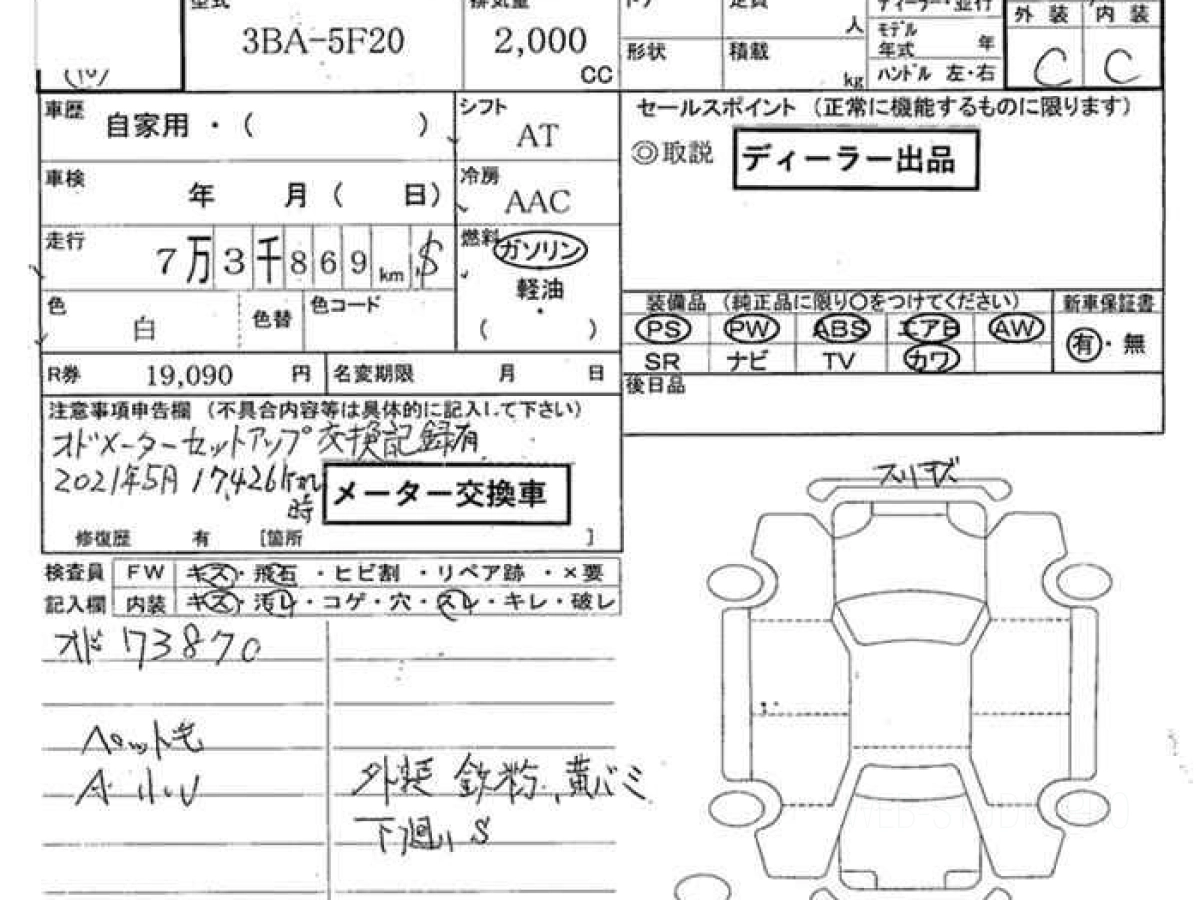 型式 3BA-5F20
排気量 2,000 CC
ドア 定員 人
形状 積載 kg
ディーラー・並行
モデル年式 年
ハンドル 左・右
外装 内装
C C
車歴 自家用・( )
シフト AT
車検 年 月( 日)
冷房 AAC
走行 7万3千869km $
燃料 ガソリン
軽油
( )
色 白 色替 色コード
R券 19,090 円 名変期限 月 日
セールスポイント (正常に機能するものに限ります)
◎取説 ディーラー出品
装備品 (純正品に限り○をつけてください) 新車保証書
PS PW ABS エアB AW 有・無
SR ナビ TV カワ
後日品
注意事項申告欄 (不具合内容等は具体的に記入して下さい)
オドメーターセットアップ交換記録有
2021年5月 17,426km
時 メーター交換車
修復歴 有 [箇所 ]
検査員 FW キズ・飛石・ヒビ割・リペア跡・×要
記入欄 内装 キズ・汚レ・コゲ・穴・スレ・キレ・破レ
オド 73870
ペット毛
外装 鉄粉、黄バミ
下廻りS
スリキズ